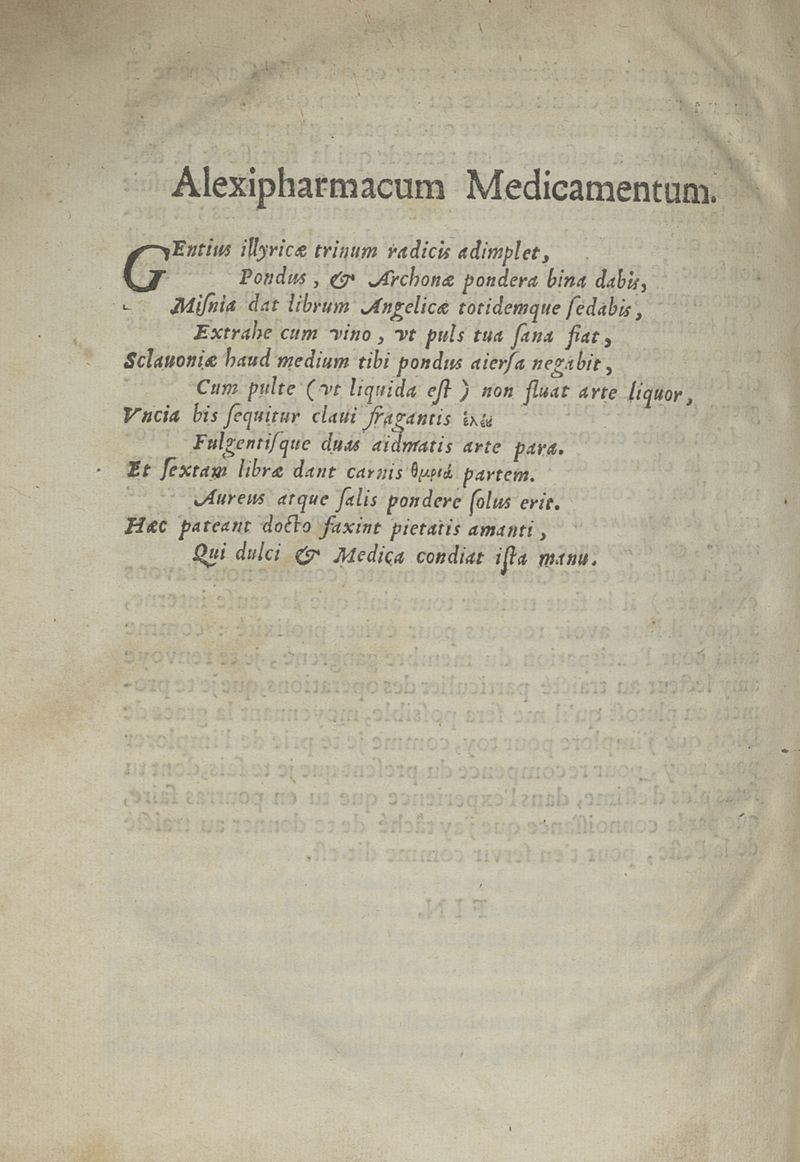 Alexipharmacum Medicamentum.
GEntius illyricæ trinum radicis adimplet,
Pondus, & Archonæ pondera bina dabis,
Miſnia dat librum Angelicæ totidemque ſedabis,
Extrahe cum vino, vt puls tua ſana fiat,
Sclauoniæ haud medium tibi pondus aierſa negabit,
Cum pulte (vt liquida eſt) non fluat arte liquor,
Vncia bis ſequitur claui fragantis
Fulgentiſque duas aidmatis arte para.
Et ſextam libræ dant carnis partem.
Aureus atque ſalis pondere ſolus erit.
Hæc pateant docto faxint pietatis amanti,
Qui dulci & Medica condiat iſta manu.
FIN.